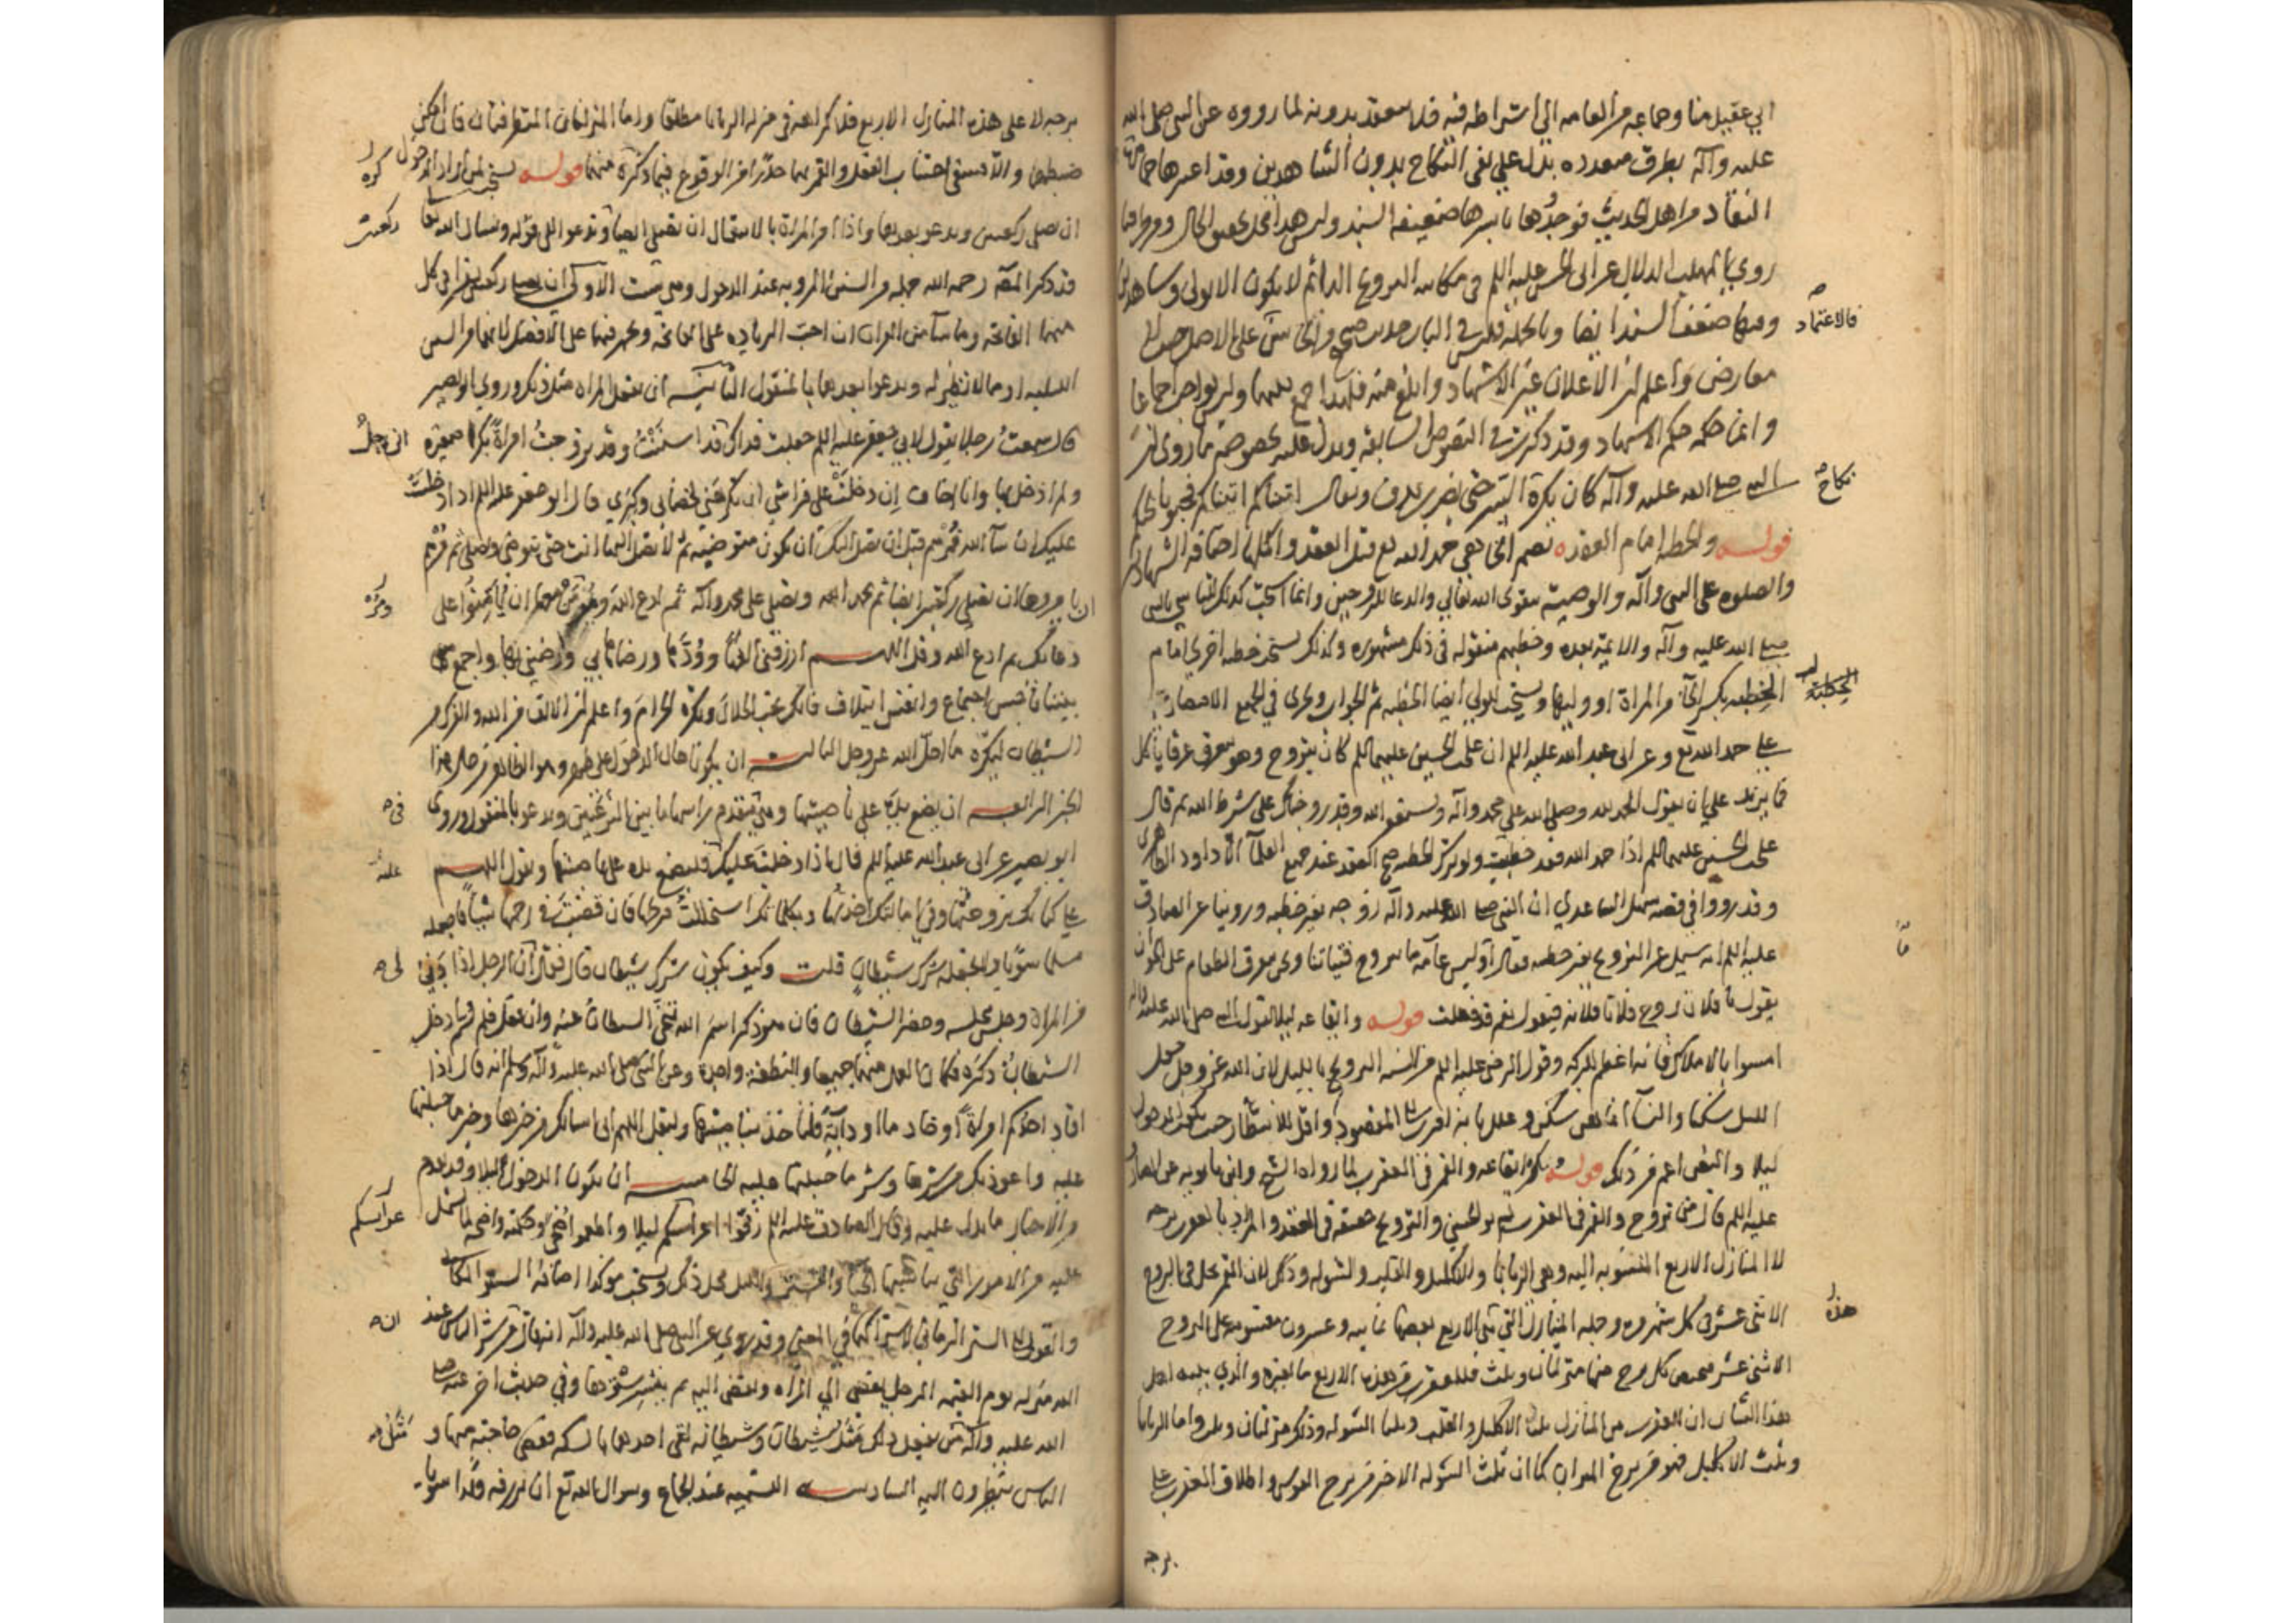 ابي عقيل منا وجماعه من العامه الي اشتراطه فيه فلا ينعقد بدونه لما رووه عن النبي صلى الله
عليه وآله بطرق متعدده يدل علي نفي النكاح بدون الشاهدين وقد اعتبرها جماعة
النقاد من اهل الحديث فوجدوها باسرها ضعيفه السند
روي المهلب الدلال عن ابي الحسن عليه السلم في مكاتبه التزويج الدائم لا يكون الا بولي وشاهدين
وفيها ضعف السند ايضا وبالجمله فليس في الباب حديث صحيح
فالاعتماد
معارض واعلم ان الاعلان غير الاشهاد وابلغ منه فلهذا جمع بينهما وليس بواجب اجماعا
وانما حكمه حكم الاشهاد وقد ذكر في النصوص السابقه ويدل عليه بخصوصه ما روي ان
النبي صلى الله عليه وآله كان يكره السر حتى يضرب بدف ويقال اتيناكم اتيناكم فحيونا نحييكم
نكاح
قوله والخطبه امام العقد
والصلوه على النبي وآله والوصيه بتقوى الله تعالي والدعا للزوجين وانما استحب كذلك للتأسي بالنبي
صلى الله عليه وآله والائمة بعده وخطبهم منقوله في ذلك مشهوره وكذلك يستحب خطبه اخري امام
الخطبه بكسر الخآ من المراة او وليها ويستحب للولي ايضا الخطبه ثم الجواب ويجزي في الجميع الاقتصار
الخطبة
علي حمد الله تع وعن ابي عبد الله عليه السلم ان علي بن الحسين عليهما السلم كان يتزوج وهو يتعرق عرقا يأكل
فما يزيد علي ان يقول الحمد لله وصلى الله علي محمد وآله ونستغفر الله وقد زوجناك علي شرط الله ثم قال
علي بن الحسين عليهما السلم اذا حمد الله فقد خطب ولو ترك الخطبه صح العقد عند جميع العلمآ الا داود الظاهري
وقد رووا في قصه سهل الساعدي ان النبي صلى الله عليه وآله زوجه بغير خطبه وروينا عن الصادق
عليه السلم انه سئل عن التزويج بغير خطبه فقال اوليس عامة ما يتزوج فتياتنا ونحن نتعرق الطعام على الخوان
يقول يا فلان زوج فلانا فلانه فيقول نعم قد فعلت قوله وايقاعه ليلا لقول النبي صلى الله عليه وآله
امسوا بالاملاك فانه اعظم للبركه وقول الرضى عليه السلم من السنه التزويج بالليل لان الله عز وجل جعل
الليل سكنا والنسآ انما هن سكن
ليلا والنص اعم من ذلك قوله ويكره ايقاعه والقمر في العقرب لما رواه الشيخ وابن بابويه عن الصادق
عليه السلم قال من تزوج والقمر في العقرب لم ير الحسنى والتزويج حقيقه في العقد والمراد بالعقرب برجه
لا المنازل الاربع المنسوبه اليه وهي الزبانا والاكليل والقلب والشوله وذلك لان القمر يحل في البروج
الاثني عشر في كل شهر مره وجمله المنازل التي هذه الاربع بعضها ثمانيه وعشرون مقسومه على البروج
هذه
الاثني عشر فيخص كل برج منها منزلتان وثلث فللعقرب من هذه الاربع ما لغيره والذي بينه اهل
هذا الشان ان للعقرب من المنازل ثلثا الاكليل والقلب وثلثا الشوله وذلك منزلتان وثلث واما الزبانا
وثلث الاكليل فهو من برج الميزان كما ان ثلث الشوله الاخر من برج القوس واطلاق العقرب على
برجه
برجه لا على هذه المنازل الاربع فلا كراهه في منزله الزبانا مطلقا واما المنزلتان المتطرفتان فان امكن
ضبطهما والا فينبغي اجتناب العقد والقمر بهما حذرا من الوقوع فيما ذكره منهما قوله يستحب لمن اراد الدخول
ان يصلي ركعتين ويدعو بعدهما واذا امر المراة بالانتقال ان تصلي ايضا وتدعو الى قوله ويسال الله تعالى
قد ذكر المص رحمه الله جمله من السنن المرويه عند الدخول وهي ست الاولى ان يصلي ركعتين يقرا في كل
منهما الفاتحه وما شآ من القران ان احب الزياده على الفاتحه
الليليه او مما لا نظير له ويدعوا بعدهما بالمنقول الثانيه ان تفعل المراه مثل ذلك وروي ابو بصير
قال سمعت رجلا يقول لابي جعفر عليه السلم جعلت فداك قد اسننت وقد تزوجت امراة بكرا صغيره
اني رجل
ولم ادخل بها وانا اخاف ان دخلت على فراشي ان تكرهني لخضابي وكبري قال ابو جعفر عليه السلم اذا دخلت
عليك ان شآ الله فمرهم قبل ان تصل اليك ان تكون متوضيه ثم لا تصل اليها انت حتى توضى وتصلي ثم مرهم
ان يامروها ان تصلي ركعتين ايضا ثم تحمد الله وتصلي على محمد وآله ثم ادع الله ومر من معها ان يؤمنوا على
ومره
دعائك ثم ادع الله وقل اللهم ارزقني الفها وودها ورضاها بي وارضني بها واجمع
بيننا باحسن اجتماع وانفس ايتلاف فانك تحب الحلال وتكره الحرام واعلم ان الالف من الله والفرك من
الشيطان ليكره ما احل الله عز وجل الثالث ان يكونا حال الدخول على طهر
الخبر الرابع ان يضع يده على ناصيتها وهي مقدم راسها ما بين النزعتين ويدعو بالمنقول وروى
ابو بصير عن ابي عبد الله عليه السلم قال اذا دخلت عليك فليضع يده على ناصيتها ويقول اللهم
علي كتابك تزوجتها وفي امانتك اخذتها وبكلماتك استحللت فرجها فان قضيت في رحمها شيئا فاجعله
مسلما سويا ولا تجعله شرك شيطان قلت وكيف يكون شرك شيطان قال فقال ان الرجل اذا دنى
من المراة وجلس مجلسه وحضره الشيطان فان هو ذكر اسم الله تنحى الشيطان عنه وان فعل ولم يسم ادخل
الشيطان ذكره فكان العمل منهما جميعا والنطفة واحدة وعن النبي صلى الله عليه وآله وسلم انه قال اذا
افاد احدكم امراة او خادما او دابة فلياخذ بناصيتها وليقل اللهم اني اسالك من خيرها وخير ما جبلتها
عليه واعوذ بك من شرها وشر ما جبلتها عليه الخامسه ان يكون الدخول ليلا وقد تقدم
من الاخبار ما يدل عليه وقال الصادق عليه السلم زفوا اعرائسكم ليلا واطعموا ضحى
عرآئسكم
عليه من الامور التي يناسبها الحيآ والستر والليل محل ذلك ويستحب مؤكدا اضافه الستر المكاني
والقولي الى الستر الزماني لاشتراكهما في المعنى وقد روي عن النبي صلى الله عليه وآله انه قال من شر الناس عند
الله منزله يوم القيمه الرجل يفضي الى المراه وتفضي اليه ثم ينشر سرها وفي حديث اخر عنه صلى
الله عليه وآله من يفعل ذلك مثل شيطان وشيطانه لقى احدهما بالسكه فقضى حاجته منها و
الناس ينظرون اليه السادسه التسميه عند الجماع وسوال الله تع ان يرزقه ولدا سويا